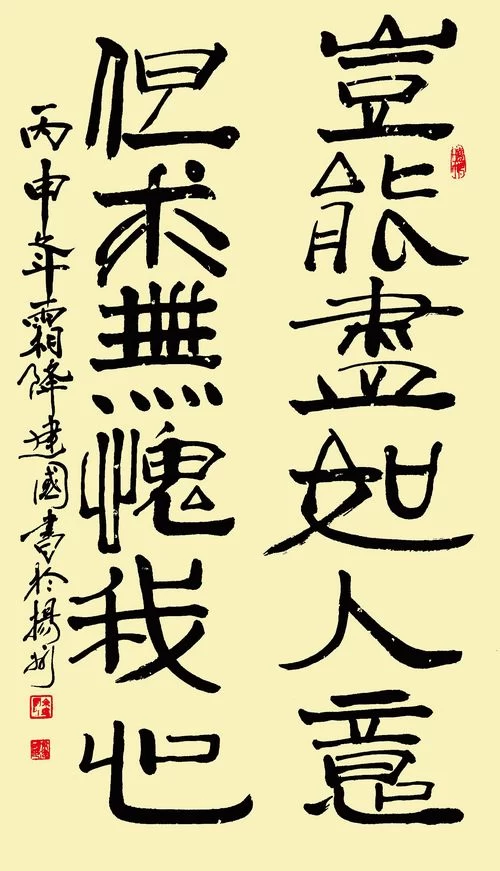 豈能盡如人意
但求無愧我心
丙申年霜降建國書於揚州